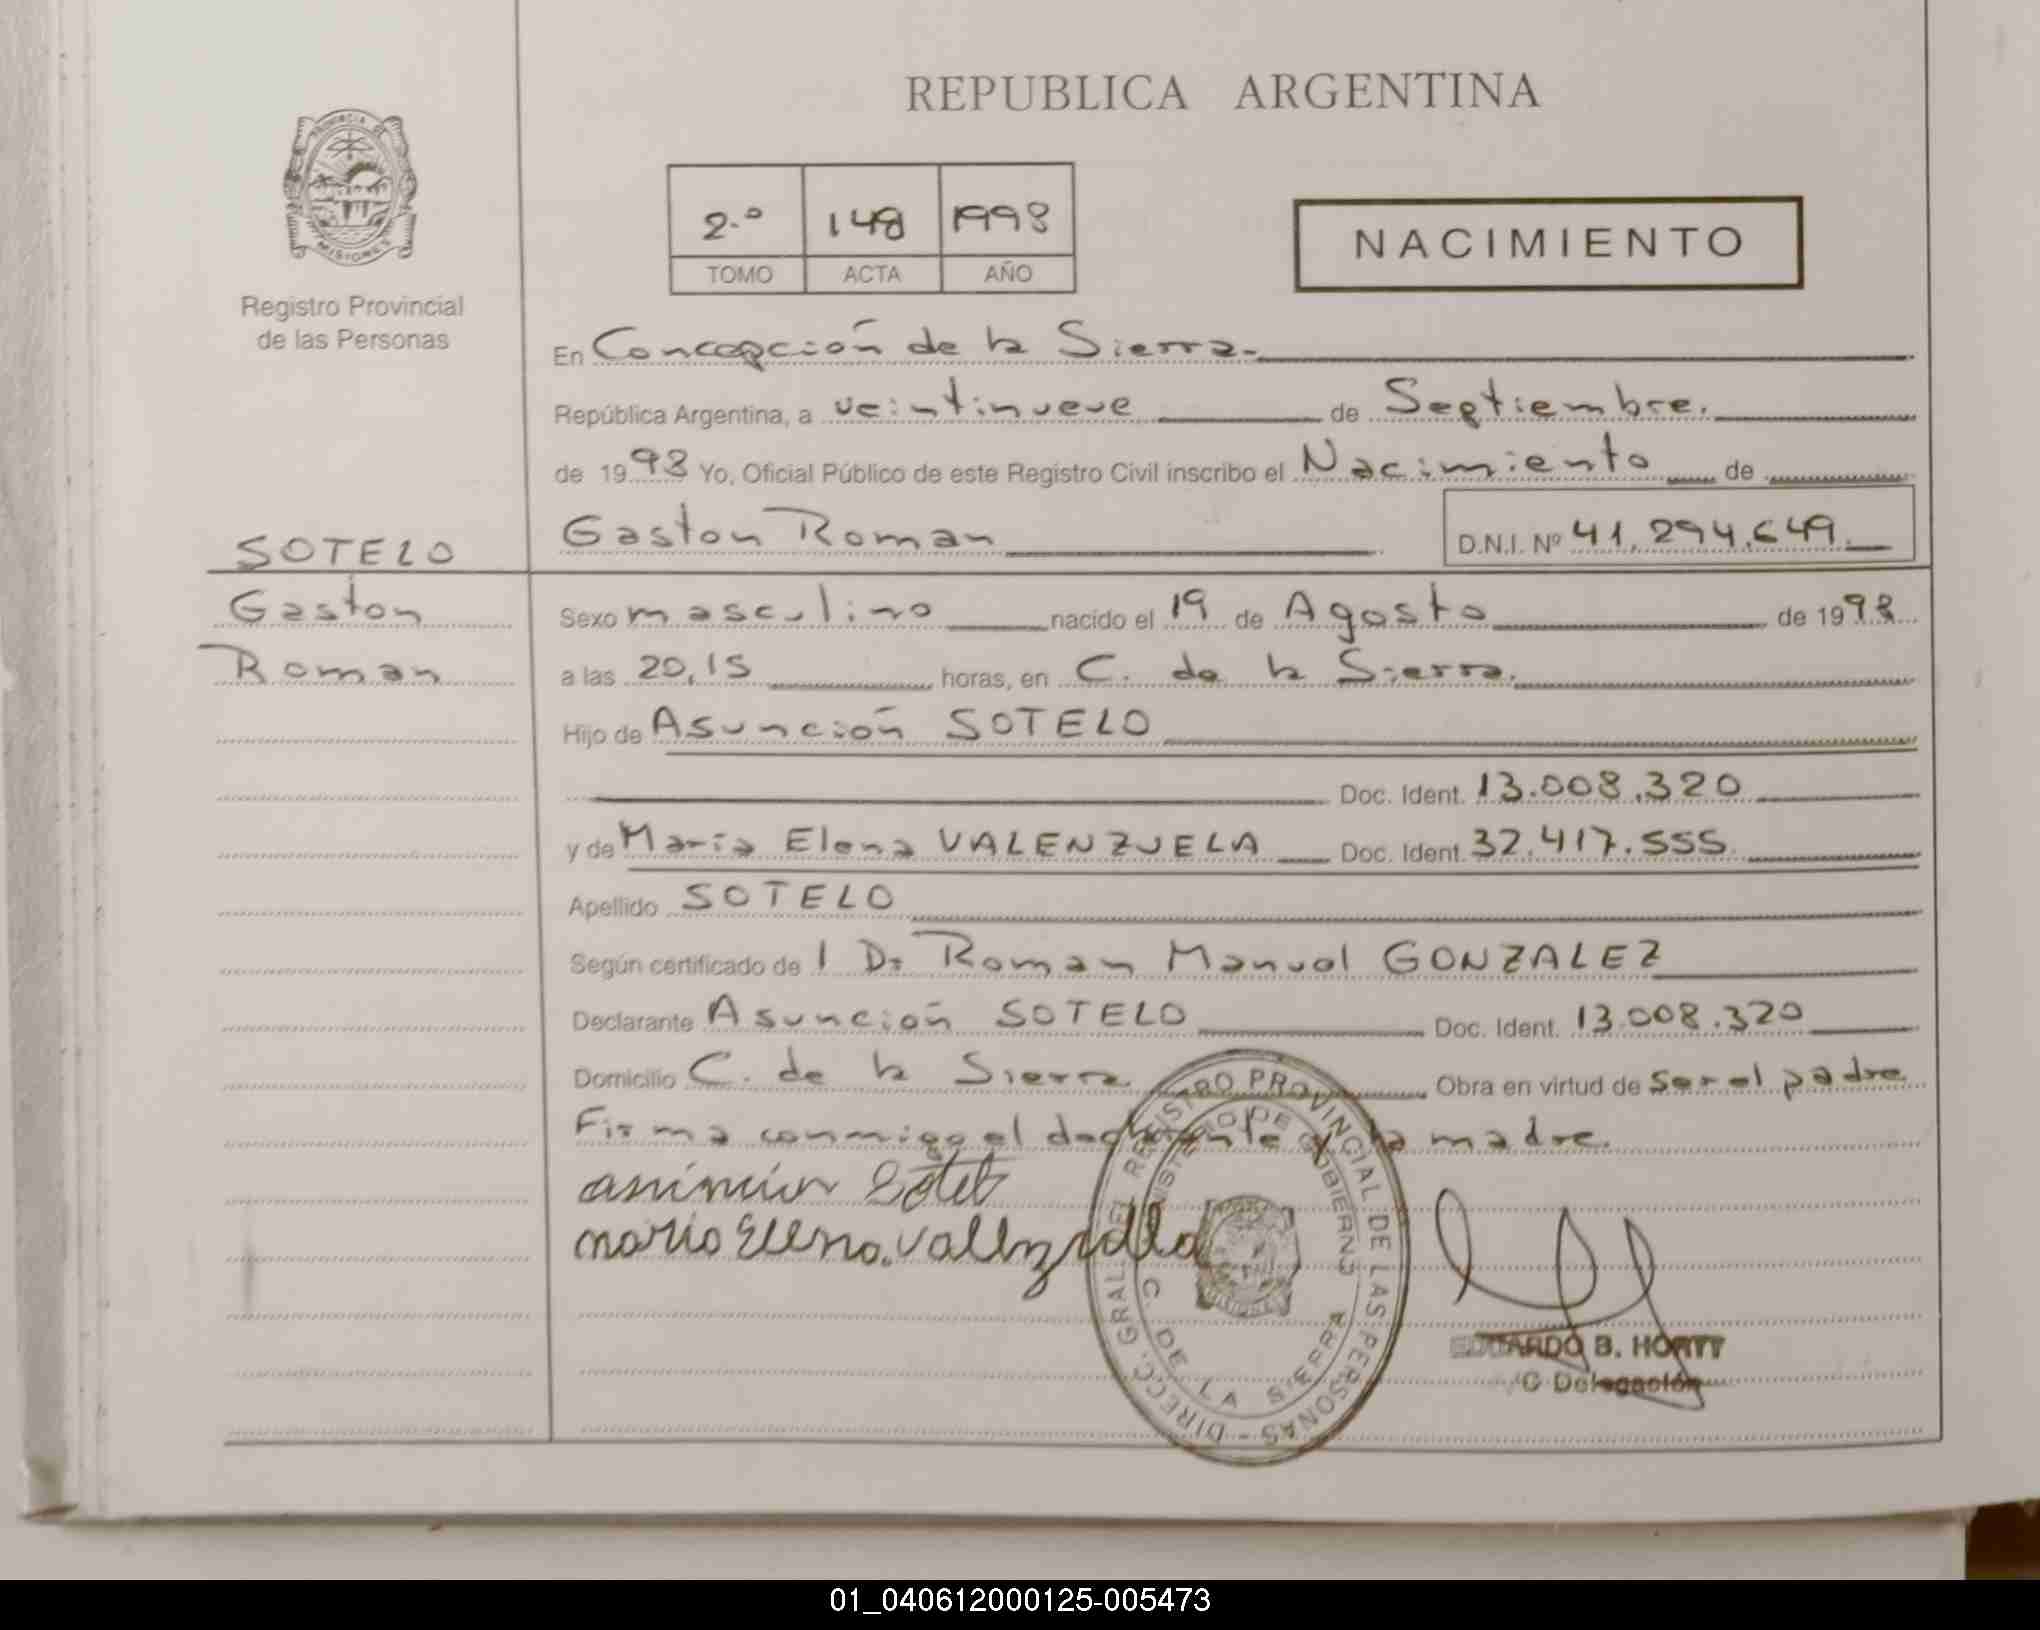 REPUBLICA ARGENTINA
PROVINCIA DE MISIONES
Registro Provincial
de las Personas
2.º 148 1998
TOMO ACTA AÑO
NACIMIENTO
En Concepción de la Sierra.
República Argentina, a veintinueve de Septiembre.
de 1998 Yo, Oficial Público de este Registro Civil inscribo el Nacimiento de
Gaston Roman D.N.I. Nº 41.294.649.
SOTELO
Gaston
Roman
Sexo masculino nacido el 19 de Agosto de 1998
a las 20,15 horas, en C. de la Sierra.
Hijo de Asunción SOTELO
Doc. Ident. 13.008.320
y de María Elena VALENZUELA Doc. Ident. 32.417.555
Apellido SOTELO
Según certificado de l Dr Roman Manuel GONZALEZ
Declarante Asunción SOTELO Doc. Ident. 13.008.320
Domicilio C. de la Sierra Obra en virtud de ser el padre
Firma conmigo el declarante y la madre.
asuncion Sotelo
maria Elena. Vallenzuella
DIRECC. GRAL. DEL REGISTRO PROVINCIAL DE LAS PERSONAS -
MINISTERIO DE GOBIERNO
C. DE LA SIERRA
EDUARDO B. HORTT
C Delegación
01_040612000125-005473